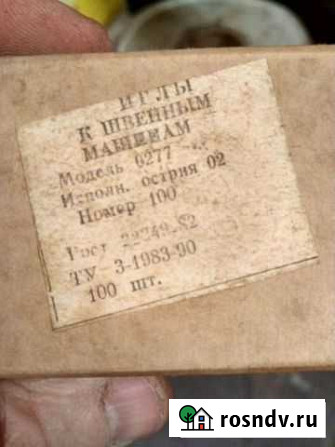 ИГЛЫ
К ШВЕЙНЫМ
МАШИНАМ
Модель 0277
Исполн. острия 02
Номер 100
Гост 22249-82
ТУ 3-1983-90
100 шт.
rosndv.ru